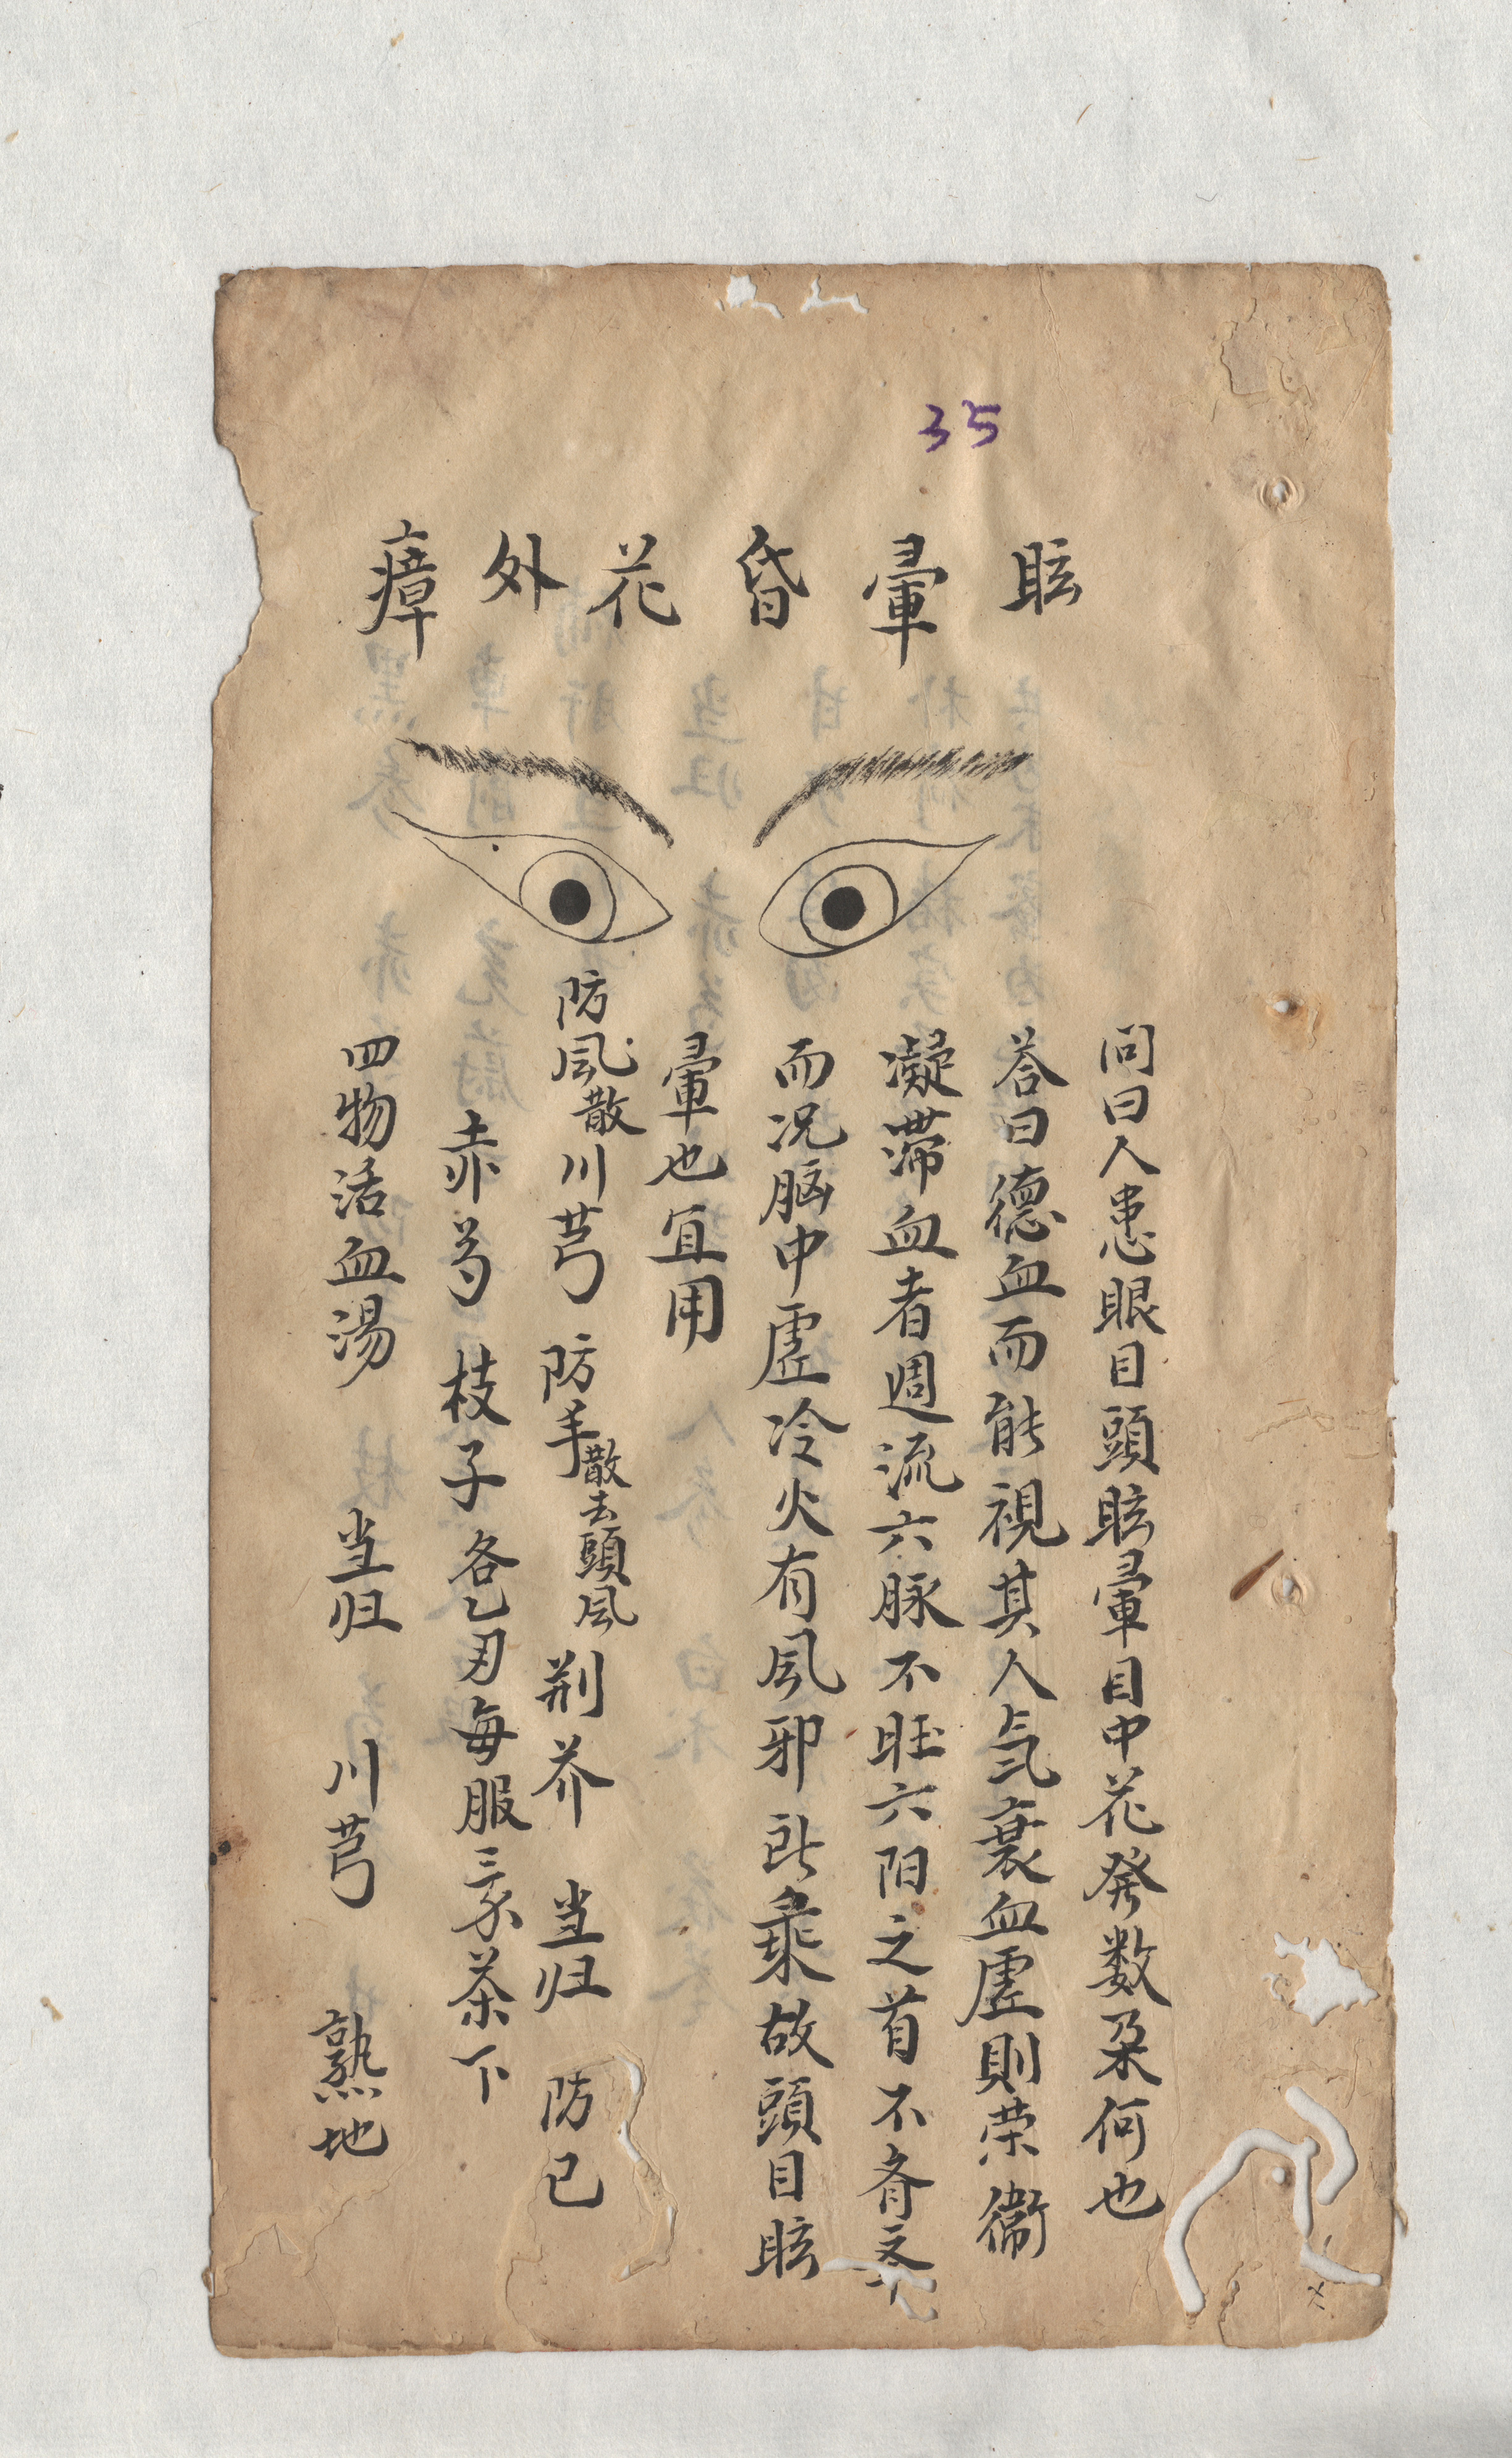 35
眩暈昏花外瘴
问曰人患眼目頭眩暈目中花発数朶何也
荅曰德血而能視其人気衰血虚則荣衞
凝滞血者週流六脉不旺六阳之首不斉
而况脑中虚冷火有风邪所乗故頭目眩
暈也宜用
防风散川芎 防羊散去頭风 荆芥 当归 防已
赤芍 枝子 各乙刄每服三茶下
四物活血湯 当归 川芎 熟地